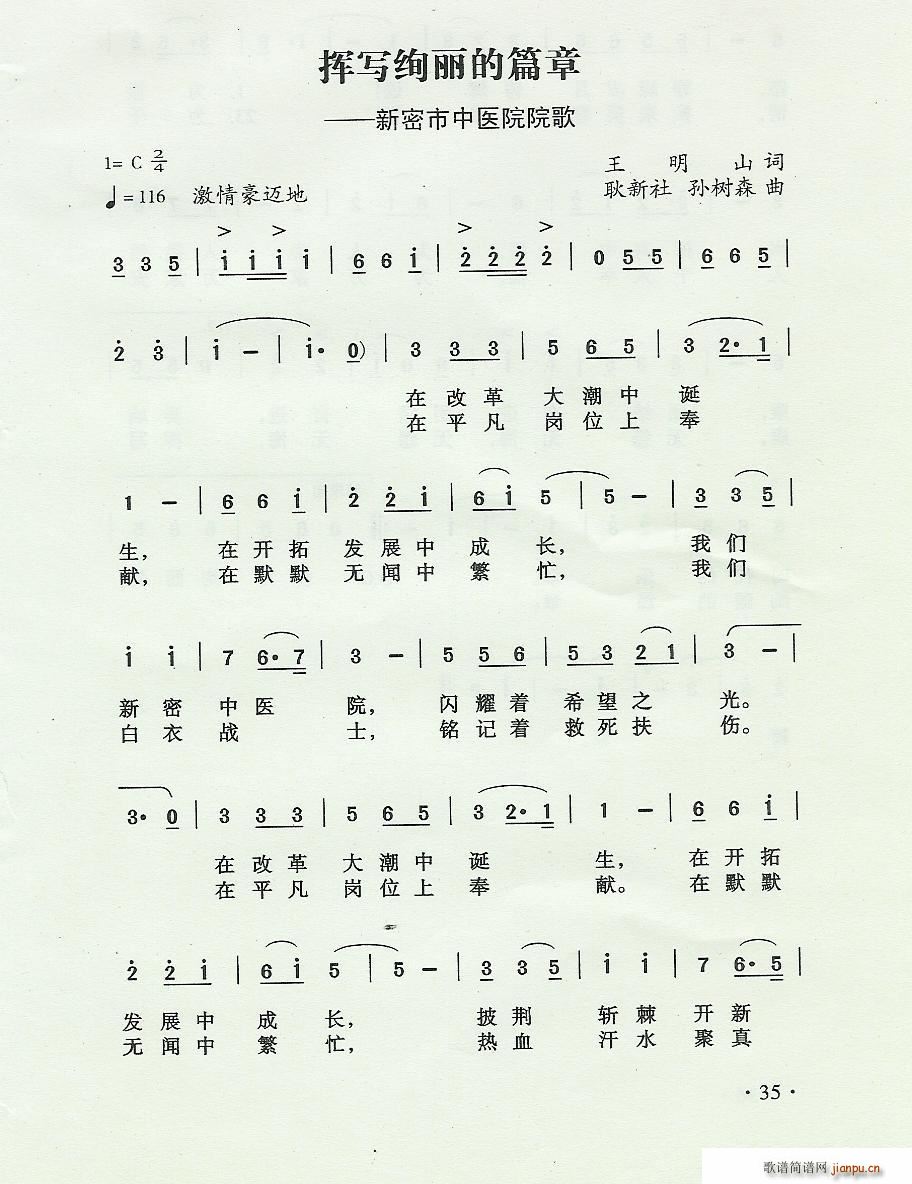 挥写绚丽的篇章
——新密市中医院院歌
1= C 2/4
王 明 山 词
♩=116 激情豪迈地
耿新社 孙树森 曲
3 3 5 | i i i i | 6 6 i | 2 2 2 2 | 0 5 5 | 6 6 5 |
2 3 | i – | i· 0) | 3 3 3 | 5 6 5 | 3 2· 1 |
在 改 革 大 潮 中 诞
在 平 凡 岗 位 上 奉
1 – | 6 6 i | 2 2 i | 6 i 5 | 5 – | 3 3 5 |
生, 在 开 拓 发 展 中 成 长, 我 们
献, 在 默 默 无 闻 中 繁 忙, 我 们
i i | 7 6· 7 | 3 – | 5 5 6 | 5 3 2 1 | 3 – |
新 密 中 医 院, 闪 耀 着 希 望 之 光。
白 衣 战 士, 铭 记 着 救 死 扶 伤。
3· 0 | 3 3 3 | 5 6 5 | 3 2· 1 | 1 – | 6 6 i |
在 改 革 大 潮 中 诞 生, 在 开 拓
在 平 凡 岗 位 上 奉 献。 在 默 默
2 2 i | 6 i 5 | 5 – | 3 3 5 | i i | 7 6· 5 |
发 展 中 成 长, 披 荆 斩 棘 开 新
无 闻 中 繁 忙, 热 血 汗 水 聚 真
· 35 ·
歌谱简谱网 jianpu.cn